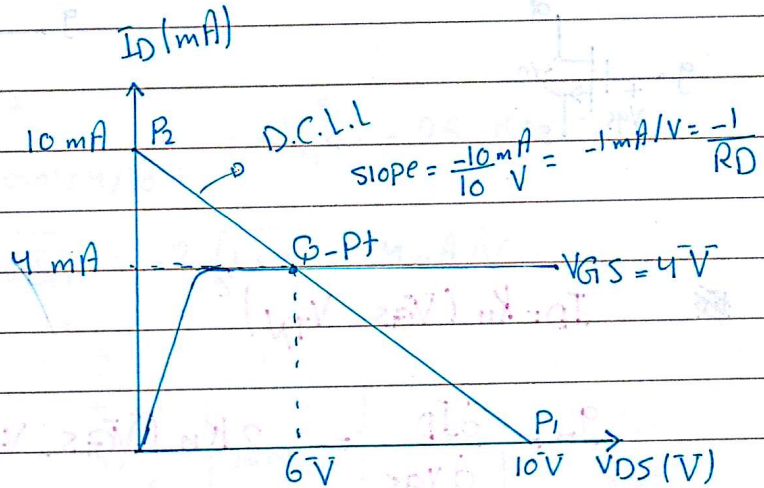 ID (mA)
10 mA P2 D.C.L.L
slope = -10 mA / 10 V = -1 mA/V = -1 / RD
4 mA Q-Pt VGS = 4V
P1
6V 10V VDS (V)